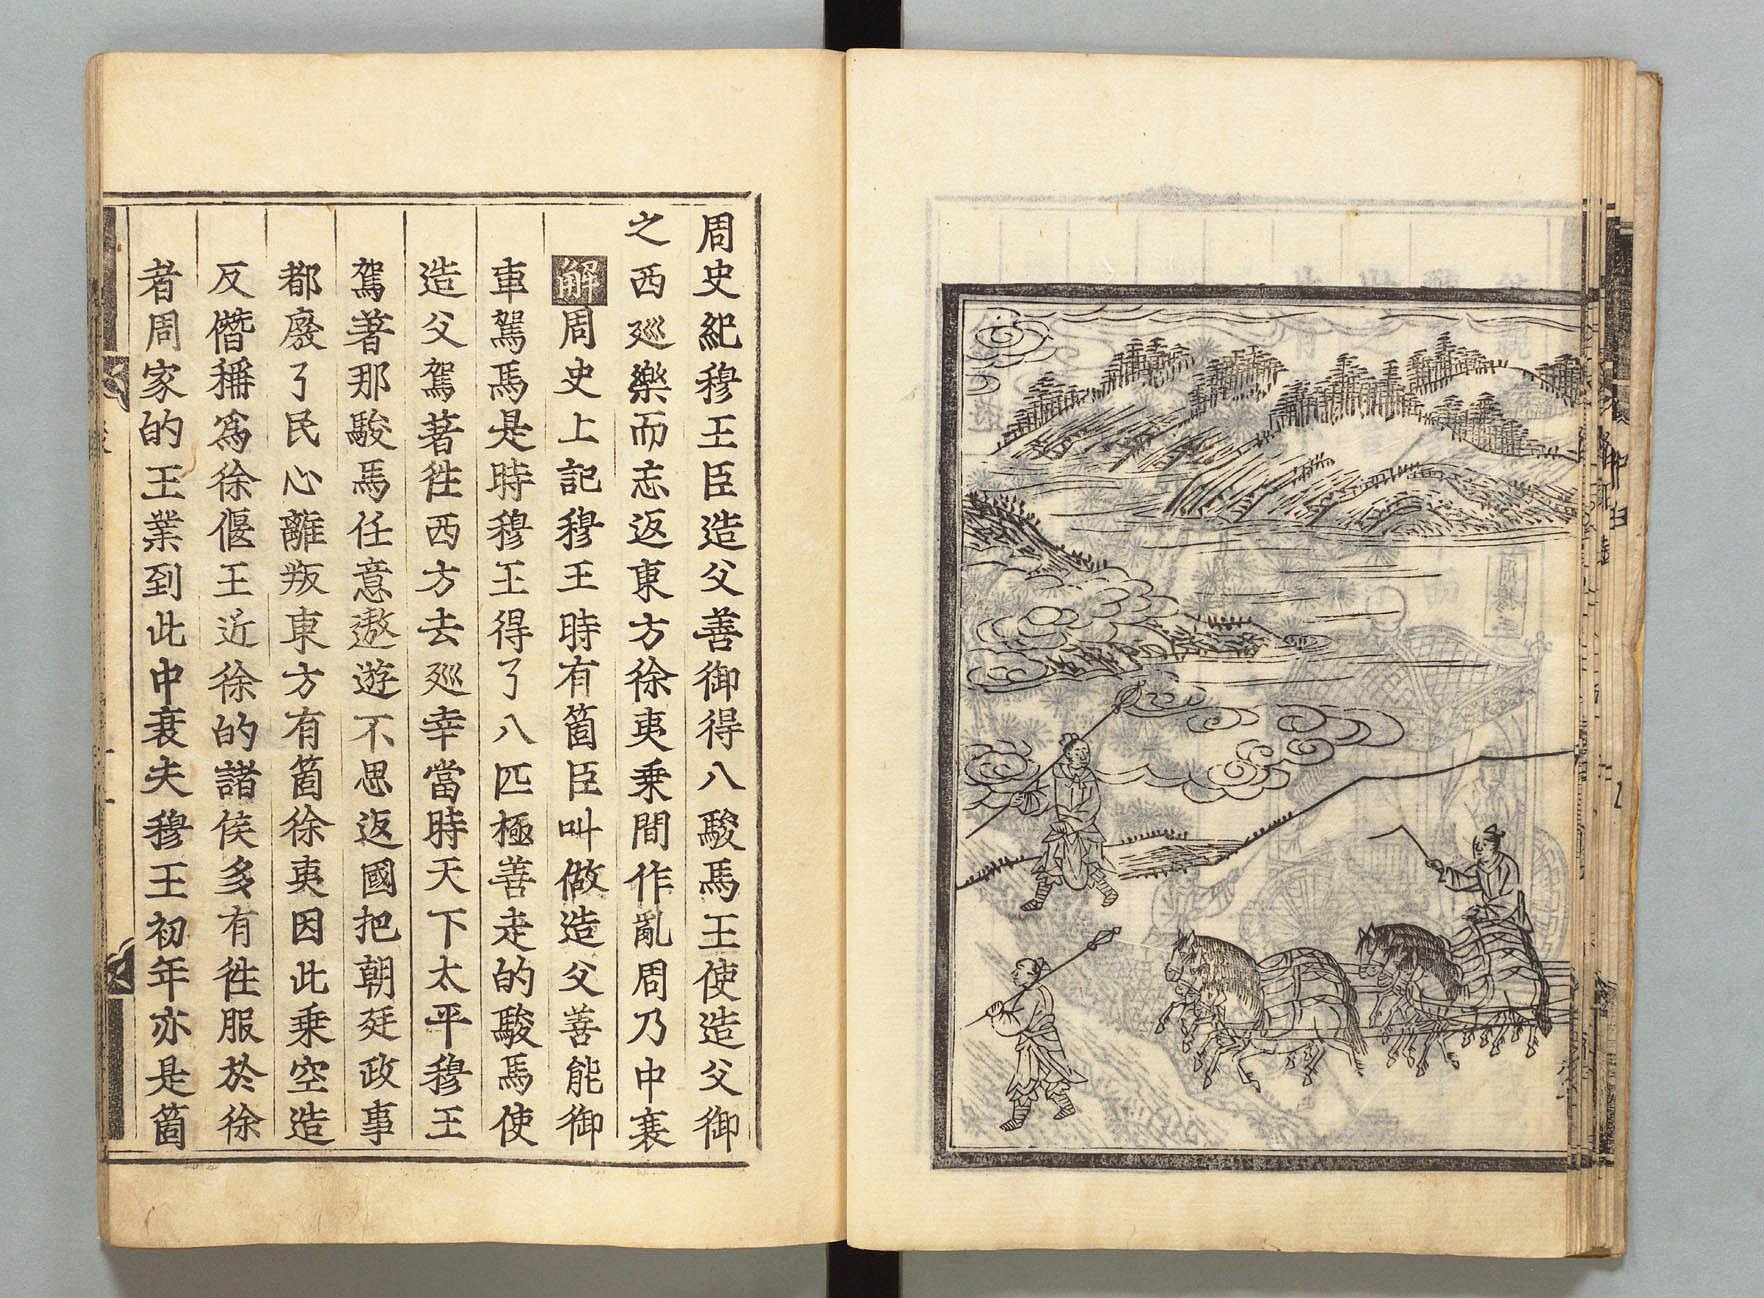 周史紀穆王臣造父善御得八駿馬王使造父御
之西廵樂而忘返東方徐夷乘間作亂周乃中衰
解周史上記穆王時有箇臣叫做造父善能御
車駕馬是時穆王得了八匹極善走的駿馬使
造父駕著徃西方去廵幸當時天下太平穆王
駕著那駿馬任意遨遊不思返國把朝廷政事
都廢了民心離叛東方有箇徐夷因此乘空造
反僭稱爲徐偃王近徐的諸侯多有徃服於徐
者周家的王業到此中衰夫穆王初年亦是箇